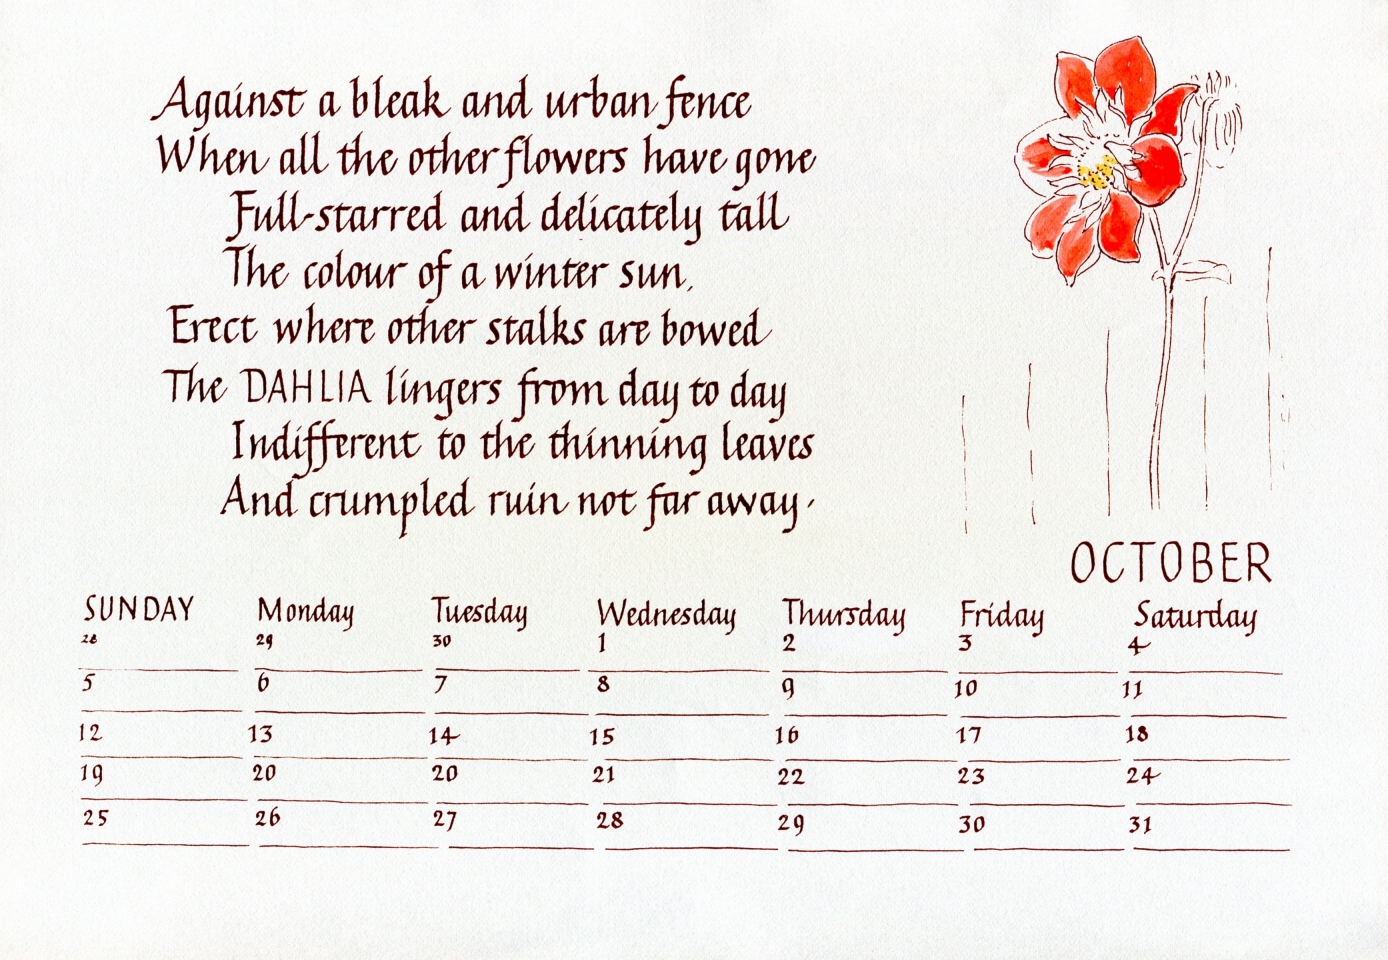 Against a bleak and urban fence
When all the other flowers have gone
Full-starred and delicately tall
The colour of a winter sun,
Erect where other stalks are bowed
The DAHLIA lingers from day to day
Indifferent to the thinning leaves
And crumpled ruin not far away.
OCTOBER
SUNDAY Monday Tuesday Wednesday Thursday Friday Saturday
28 29 30 1 2 3 4
5 6 7 8 9 10 11
12 13 14 15 16 17 18
19 20 20 21 22 23 24
25 26 27 28 29 30 31